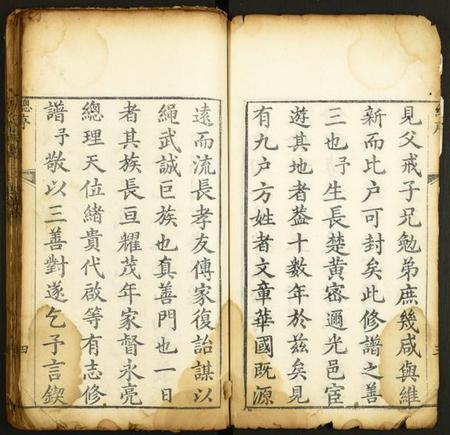 見父戒子兄勉弟庶幾咸與維
新而比户可封矣此修譜之善
三也予生長楚黃密邇光邑宦
遊其地者葢十數年於茲矣見
有九户方姓者文章華國既源
遠而流長孝友傳家復詒謀以
繩武誠巨族也真善門也一日
者其族長亘耀茂年家督永亮
總理天位緒貴代啟等有志修
譜予敬以三善對遂乞予言鍥
總序
四